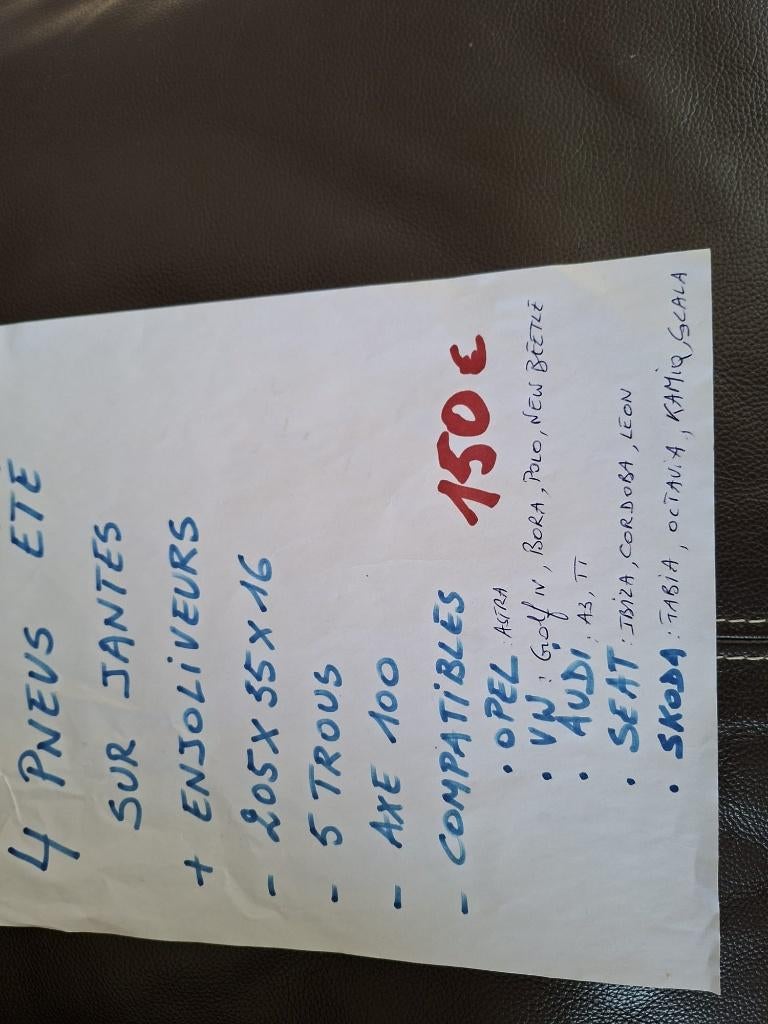 4 PNEUS ETE
SUR JANTES
+ ENJOLIVEURS
- 205X55X16
- 5 TROUS
- AXE 100
- COMPATIBLES 150€
• OPEL : ASTRA
• VW : Golf IV, BORA, POLO, NEW BEETLE
• AUDI : A3, TT
• SEAT : IBIZA, CORDOBA, LEON
• SKODA : FABIA, OCTAVIA, KAMIQ, SCALA